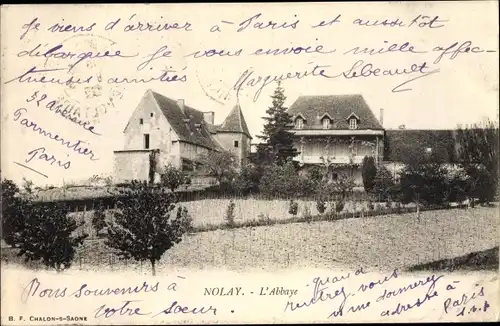 je viens d'arriver à Paris et aussitôt
débarquée je vous envoie mille affec-
tueuses amitiés
Marguerite Lebeault
52 avenue
Parmentier
Paris
NOLAY. - L'Abbaye
Bons souvenirs à
votre sœur.
quand
rentrez vous me donner
votre adresse à Paris
s.v.p
B. F. CHALON-S-SAONE